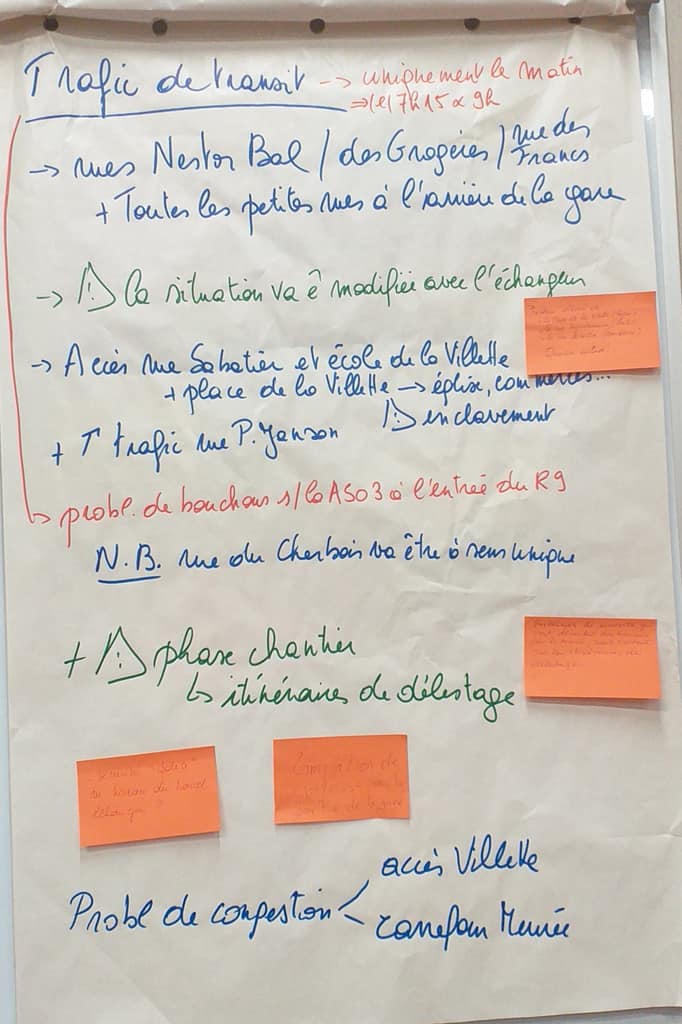 Trafic de transit → uniquement le matin
⇒ (+/-) 7h15 à 9h
→ rues Nestor Bal / des Grogères / rue des Francs
+ Toutes les petites rues à l'arrière de la gare
→ ⚠ la situation va ê modifiée avec l'échangeur
→ Accès rue Sabatier et école de la Villette
+ place de la Villette → église, commerces...
⚠ enclavement
+ ↑ trafic rue P. Janson
↳ probl. de bouchons s/ la A503 à l'entrée du R9
N.B. rue du Cherbois va être à sens unique
+ ⚠ phase chantier
↳ itinéraires de délestage
au niveau du nouvel
échangeur ?
de
de la gare
Probl de congestion < accès Villette
carrefour Meurée